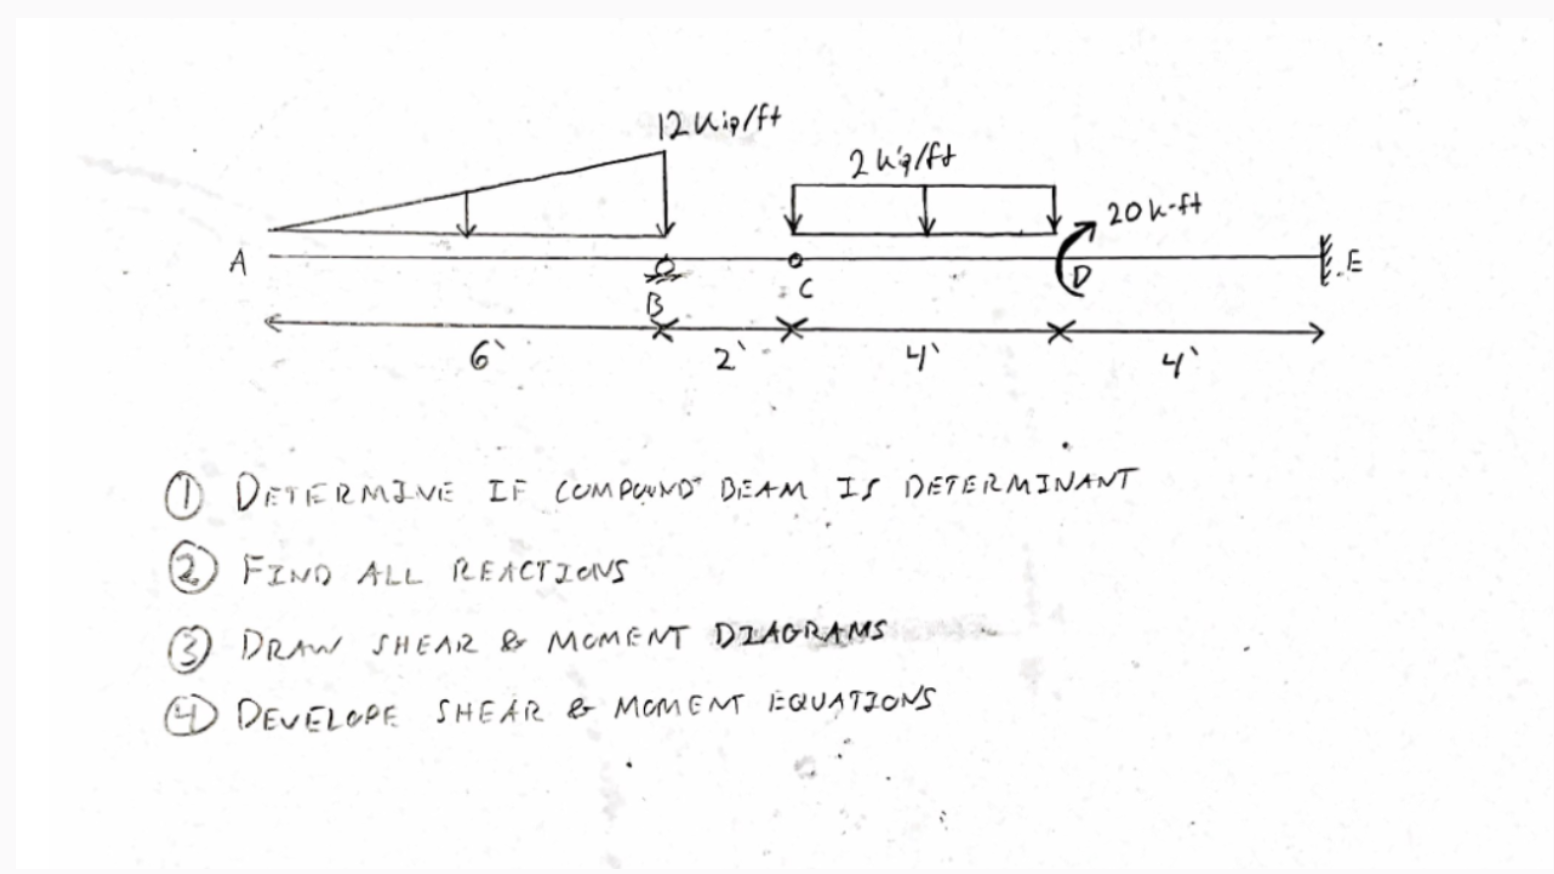 12 Kip/ft
2 kip/ft
20 k-ft
A
B
C
D
E
6'
2'
4'
4'
① DETERMINE IF COMPOUND BEAM IS DETERMINANT
② FIND ALL REACTIONS
③ DRAW SHEAR & MOMENT DIAGRAMS
④ DEVELOPE SHEAR & MOMENT EQUATIONS